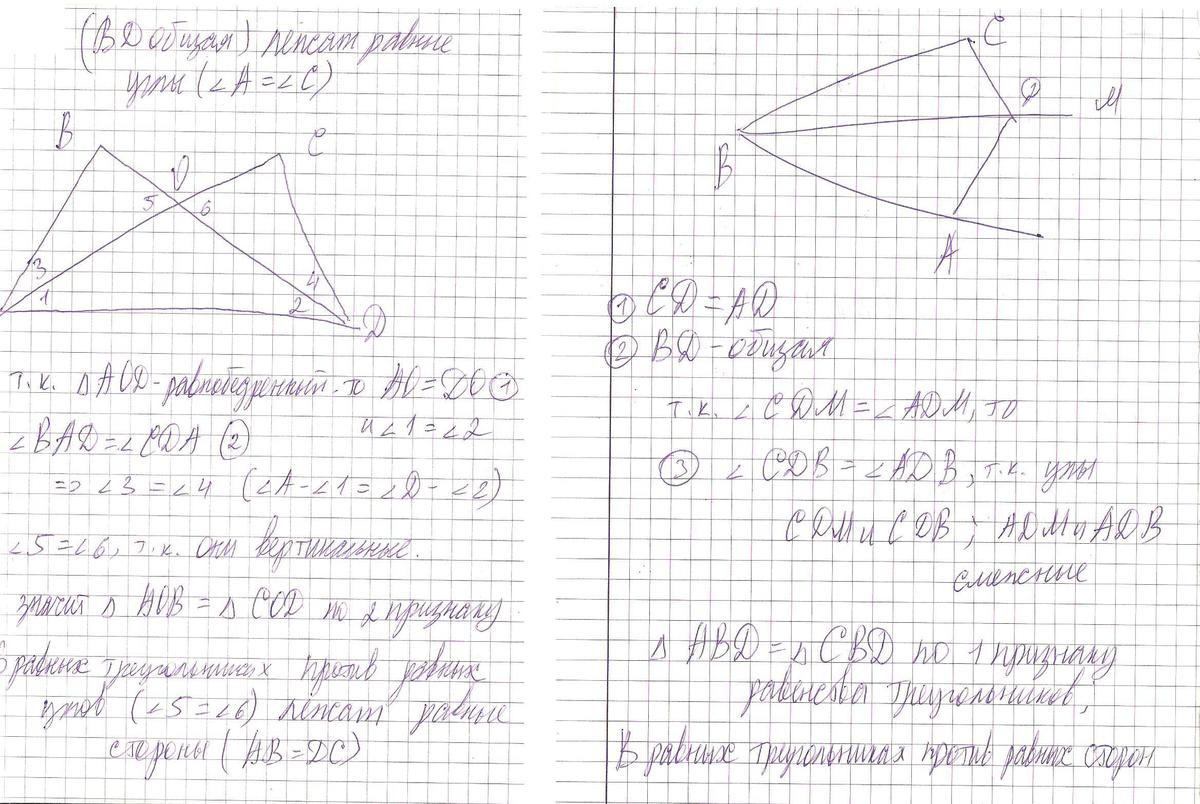 (BD общая) лежат равные
углы (∠A = ∠C)
B
O
C
5
6
3
1
4
2
D
т.к. △AOD - равнобедренный - то AO = DO ①
и ∠1 = ∠2
∠BAD = ∠CDA ②
=> ∠3 = ∠4 (∠A - ∠1 = ∠D - ∠2)
∠5 = ∠6, т.к. они вертикальные.
значит △ AOB = △ COD по 2 признаку
В равных треугольниках против равных
углов (∠5 = ∠6) лежат равные
стороны (AB = DC)
C
D
M
B
A
① CD = AD
② BD - общая
т.к. ∠ CDM = ∠ ADM, то
③ ∠ CDB = ∠ ADB, т.к. углы
CDM и CDB ; ADM и ADB
смежные
△ ABD = △ CBD по 1 признаку
равенства треугольников;
В равных треугольниках против равных сторон